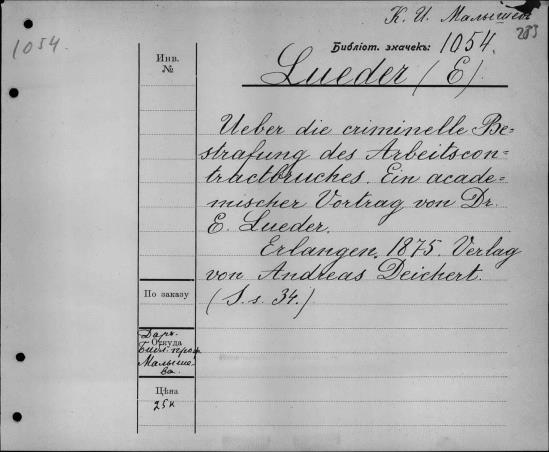 К. И. Малышев
283
1054.
Библіот. значекъ: 1054.
Инв.
№
Lueder (E).
Ueber die criminelle Be=
strafung des Arbeitscon=
tractbruches. Ein acade=
mischer Vortrag von Dr.
E. Lueder.
Erlangen. 1875. Verlag
von Andreas Deichert.
(S. s. 34.)
По заказу
Откуда
Даръ.
Библ. проф.
Малыше-
ва.
Цѣна
25 к